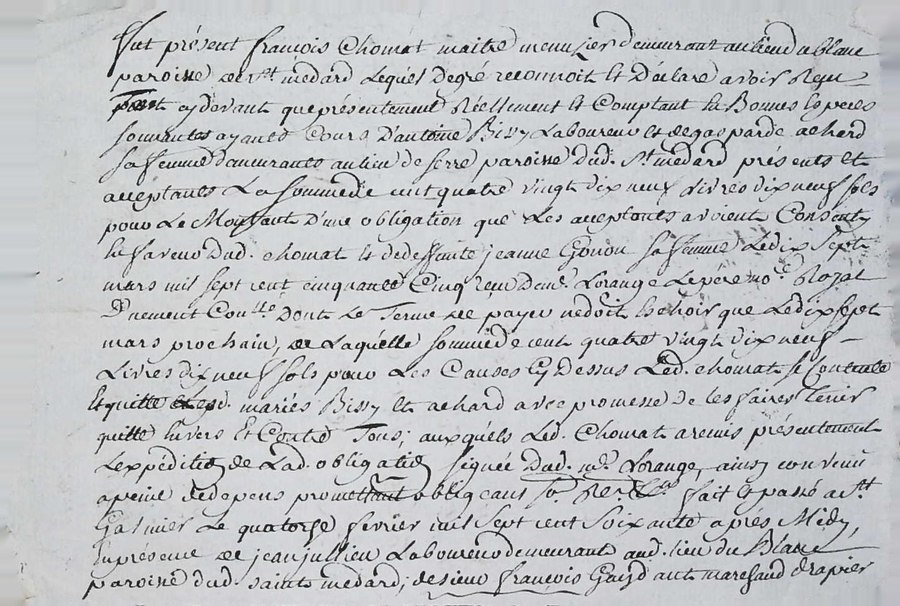 fut présent françois Chomat maitre menuzier demeurant au lieu du blanc
paroisse de st. medard Lequel de gré reconnoit et déclare avoir Reçu
tant cy devant que présentement Réellement et Comptant En Bonnes Espèces
sonnantes ayants Cours D'antoine Bissy Laboureur et de gasparde achard
sa femme demeurants au lieu de serre paroisse dud. St. medard présents et
acceptants La somme de cent quatre vingt dix neuf Livres dix neuf sols
pour Le Montant D'une obligation que Les acceptants avoient Consenty
En faveur dud. chomat et de deffunte jeanne Gonon sa femme Le dix sept
mars mil sept cent cinquante Cinq Reçu Dme. Lorange Le père nore. Royal
D'uement Conllé. Dont Le Terme de payer ne doit Echoir que Le dix sept
mars prochain, de Laquelle somme de cent quatre vingt dix neuf
Livres dix neuf sols pour Les Causes Cy Dessus Led. chomat se Contente
Et quitte lesd. mariés Bissy et achard avec promesse de les faires tenir
quitte Envers Et Contre Tous; auxquels Led. Chomat a remis présentement
L'expédition de Lad. obligation signée Dud. me. Lorange, ainsy convenu
a peine de depens promettant obligeans fait et passé a st.
Galmier Le quatorze fevrier mil sept cent soixante après Midy,
En présence de jean jullien Laboureur demeurant aud. lieu du Blanc
paroisse dud. saint medard; de sieur françois Guyd ant marchand drapier